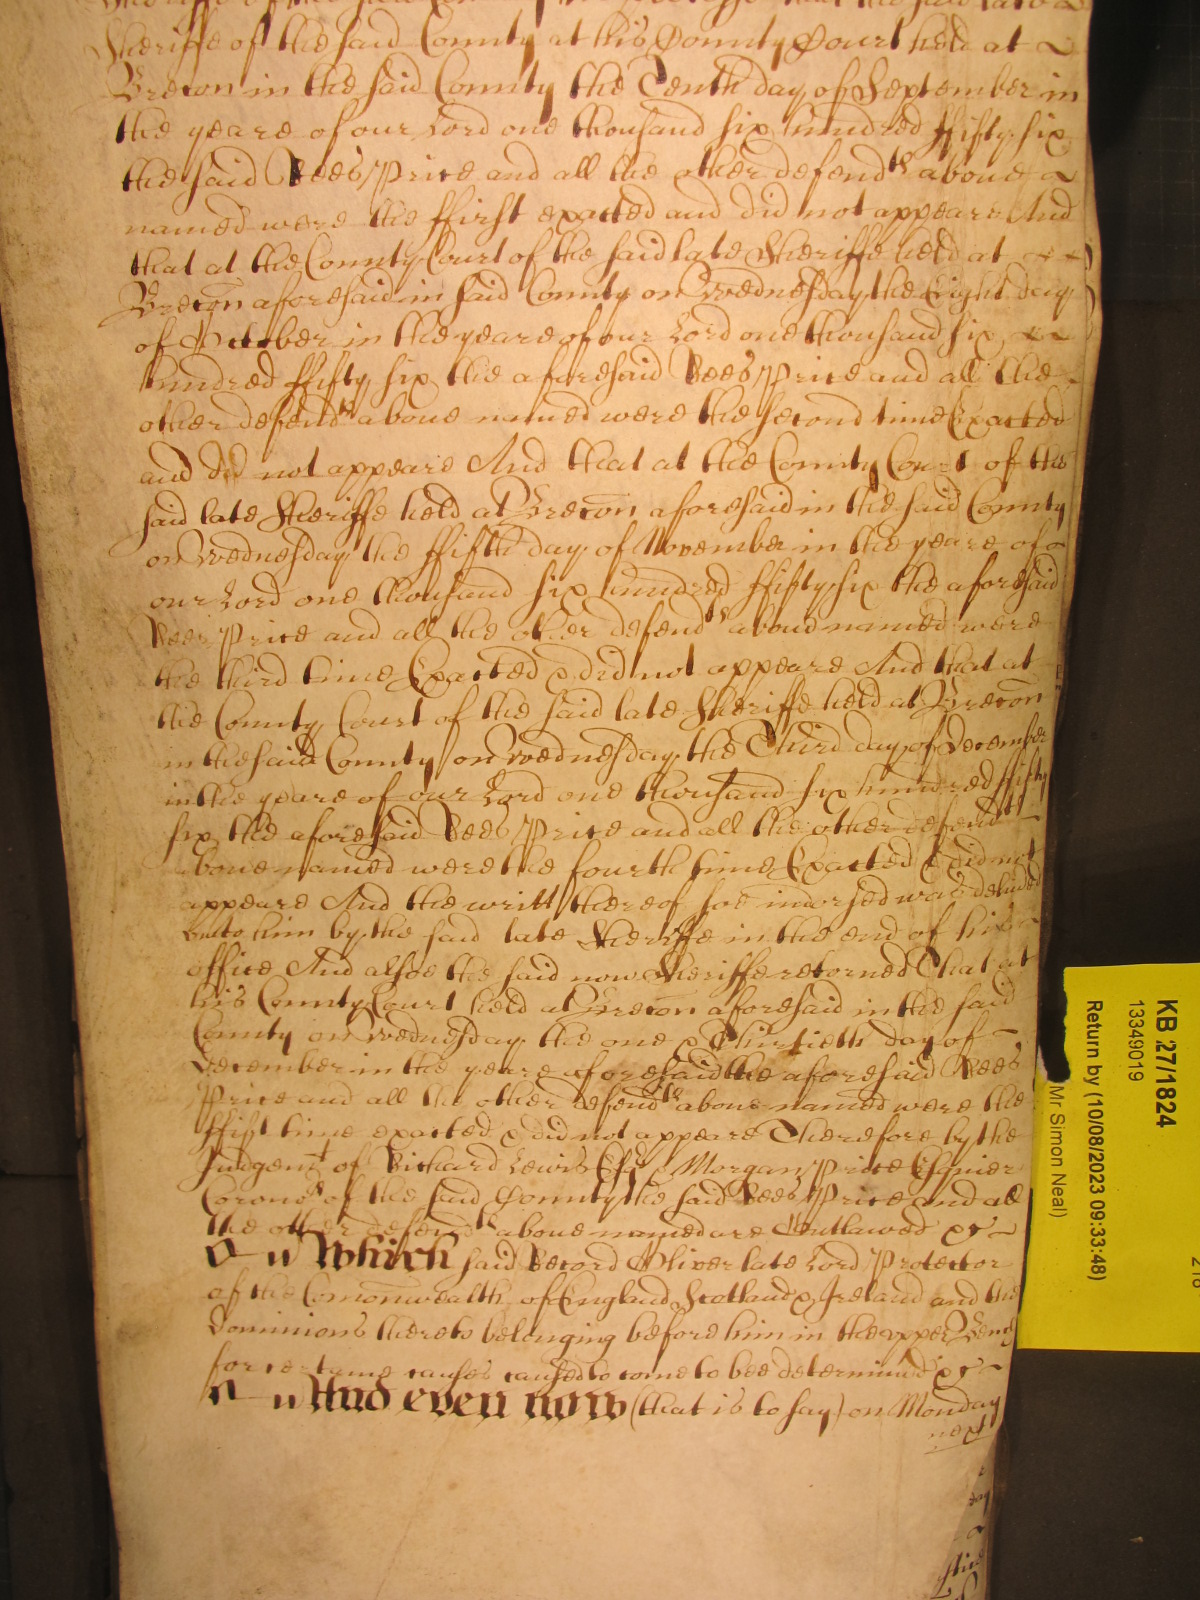 Sheriffe of the said County at his County Court held at
Brecon in the said County the Tenth day of September in
the yeare of our Lord one thousand six hundred ffifty six
the said Rees Price and all the other defendts aboue
named were the ffirst exacted and did not appeare And
that at the County Court of the said late Sheriffe held at
Brecon aforesaid in said County on Wednesday the Eight day
of October in the yeare of our Lord one thousand six
hundred ffifty six the aforesaid Rees Price and all the
other defendts aboue named were the second time Exacted
and did not appeare And that at the County Court of the
said late Sheriffe held at Brecon aforesaid in the said County
on Wednesday the ffifth day of November in the yeare of
our Lord one thousand six hundred ffifty six the aforesaid
Rees Price and all the other defendts aboue named were
the third time Exacted & did not appeare And that at
the County Court of the said late Sheriffe held at Brecon
in the said County on Wednesday the Third day of December
in the yeare of our Lord one thousand six hundred ffifty
six the aforesaid Rees Price and all the other defendts
aboue named were the fourth time Exacted & did not
appeare And the writt thereof soe indorsed was deliuèred
unto him by the said late Sheriffe in the end of his
office And alsoe the said now Sheriffe retorned That at
his County Court held at Brecon aforesaid in the said
County on Wednesday the one & Thirtieth day of
December in the yeare aforesaid the aforesaid Rees
Price and all the other defendts aboue named were the
ffift time exacted & did not appeare Therefore by the
Judgemt of Richard Lewis Esqr & Morgan Price Esquier
Coronrs of the said County the said Rees Price and all
the other defendts aboue named are Outlawed &c
On Which said Record Oliver late Lord Protector
of the Comonwealth of England Scotland & Ireland and the
Dominions thereto belonging before him in the upper Bench
for certaine causes caused to come to bee determined &c
And even now (that is to say) on Monday
next
KB 27/1824
13349019
Return by (10/08/2023 09:33:48)
Mr Simon Neal)